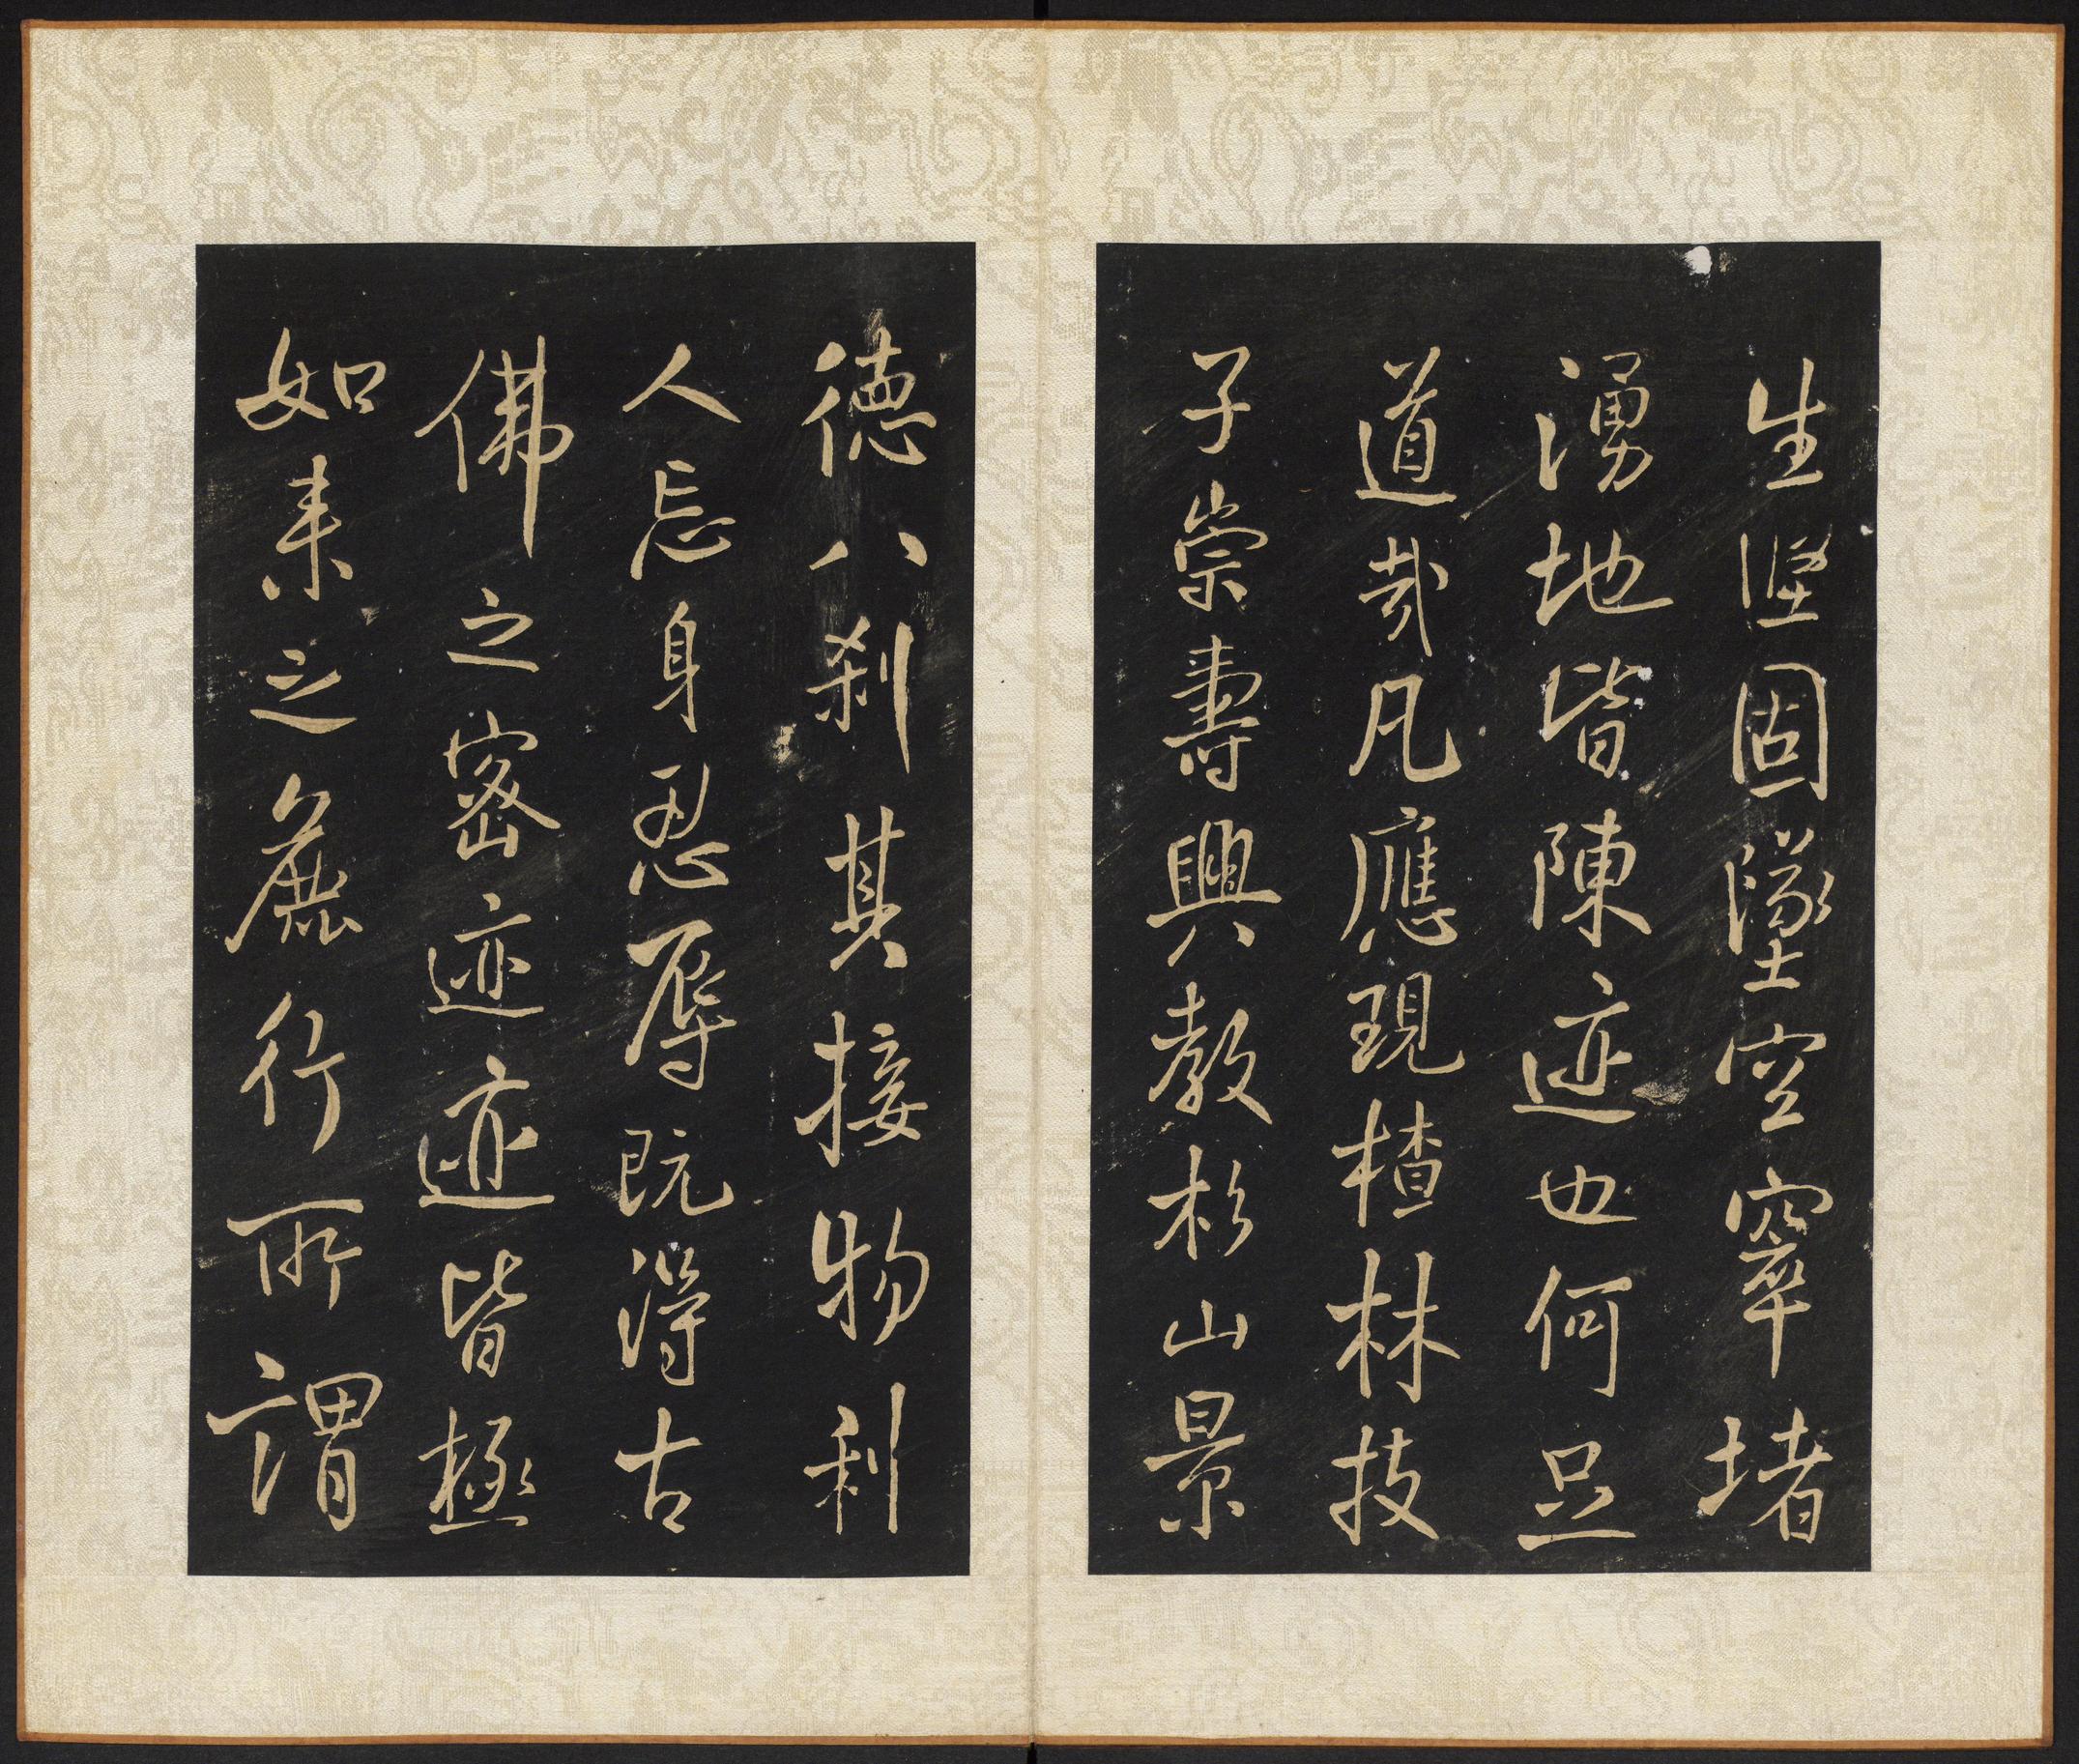 生堅固墬空窣堵
湧地皆陳迹也何足
道哉凡應現楂林技
子崇壽興教杉山景
德八剎其接物利
人忘身忍辱既得古
佛之密迹迹皆極
如来之麁行所謂